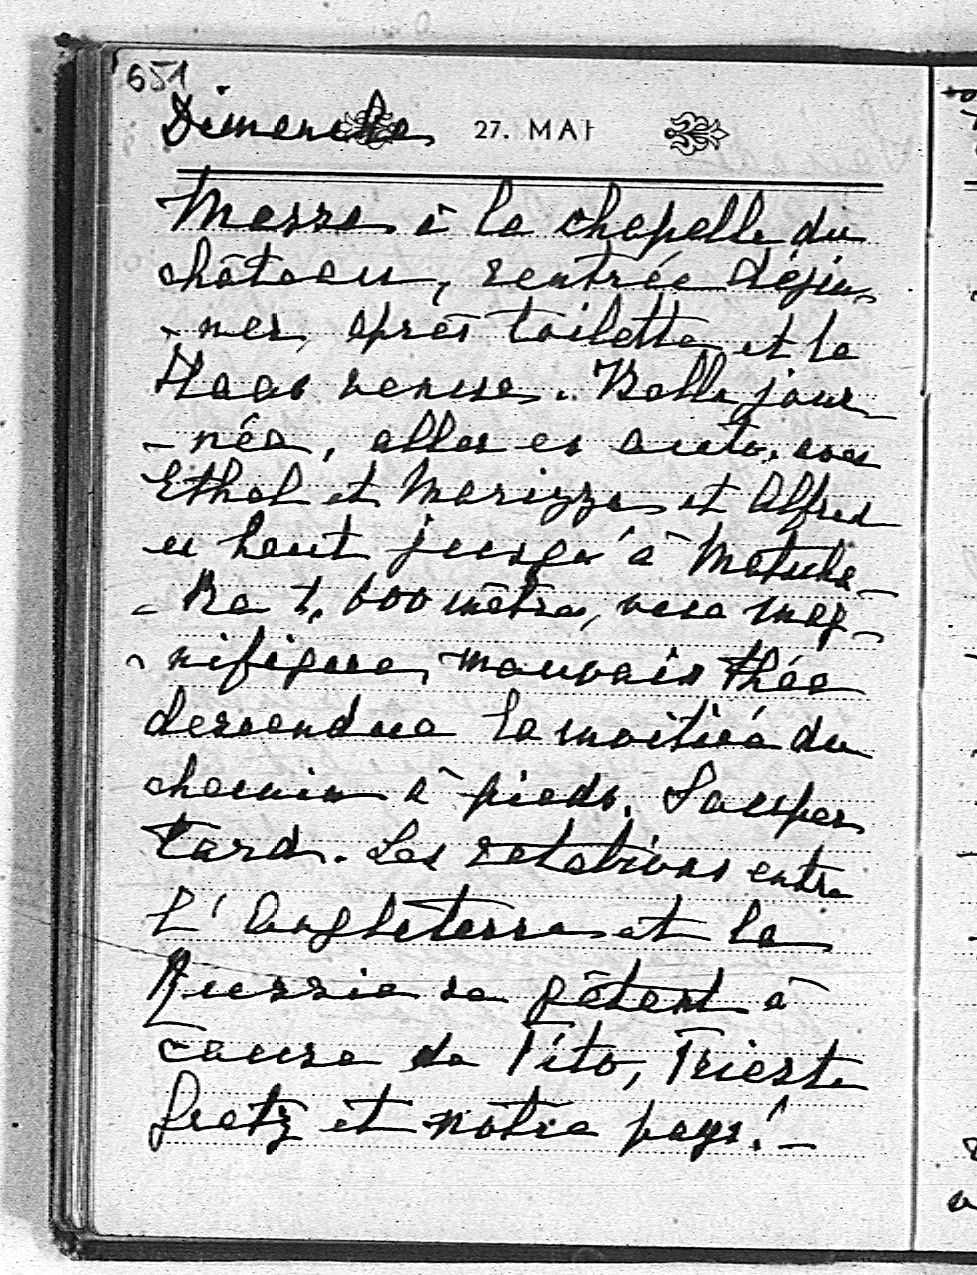 651
Dimanche 27. MAI
Messe à la chapelle du
château, rentrée déjeu-
-ner, après toilette et la
Haas venue. Belle jour-
-née, aller en auto, avec
Ethel et Marizza et Alfred
en haut jusqu'à
1,600 mètres, vue mag-
-nifique, mauvais thée
descendue la moitiée du
chemin à pieds. Souper
tard. Les relations entre
l'Angleterre et la
Russie se gâtent à
cause de Tito, Trieste
Gratz et notre pays! -